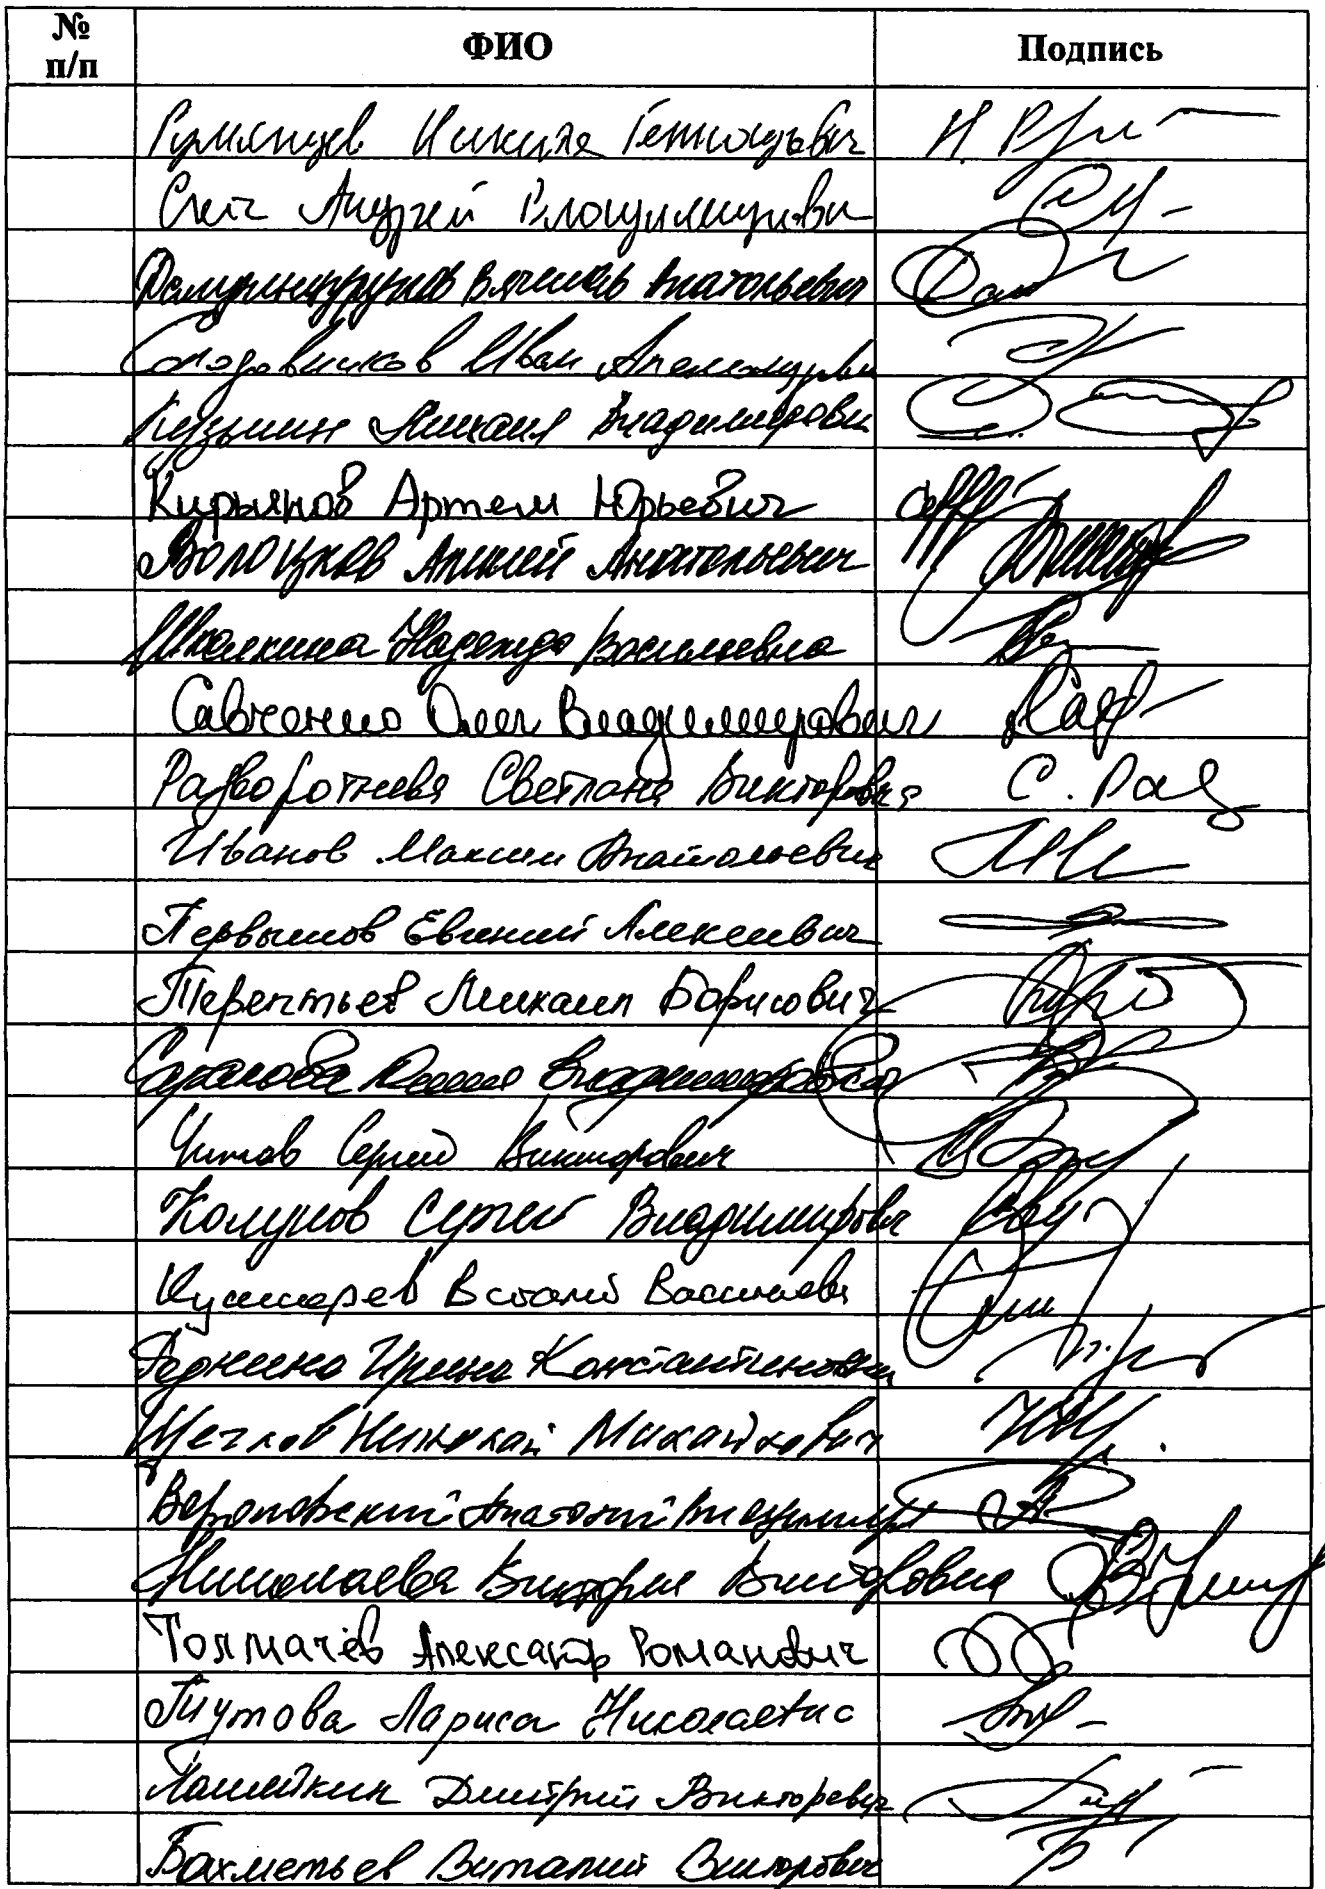 № п/п ФИО Подпись
Румянцев Никита Геннадьевич Н. Рум
Андрей Владимирови
Вячеслав Анатольевич
Солодовников Иван Александрови
Кузьмин Михаил Владимирови
Кирьянов Артем Юрьевич
Волоцков Алексей Анатольевич
Школкина Надежда Васильевна
Савченко Олег Владимирович
Разворотнева Светлана Викторовна С. Раз
Иванов Максим Анатольевич
Первышов Евгений Алексеевич
Терентьев Михаил Борисович
Сергей Викторович
Колунов Сергей Владимирович
Виталий Васильеви
Роднина Ирина Константиновна
Щеглов Николай Михайлович
Вороновский Анатолий Владимир
Николаева Виктория Викторовна
Толмачёв Александр Романович
Тутова Лариса Николаевна
Ламейкин Дмитрий Викторович
Бахметьев Виталий Викторович